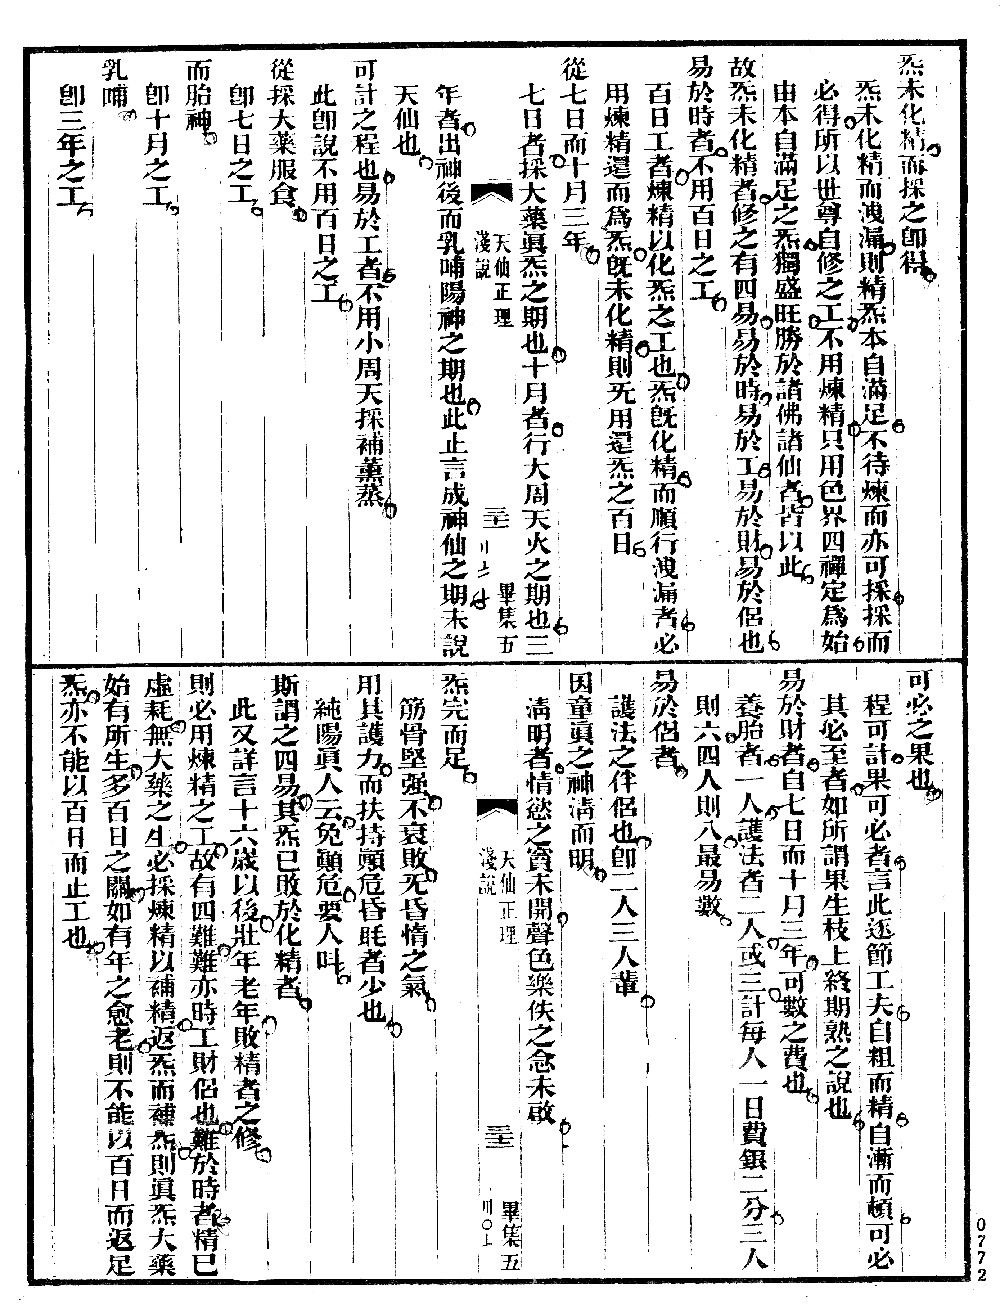 炁未化精而採之卽得
炁未化精而洩漏則精炁本自滿足不待煉而亦可採採而
必得所以世尊自修之工不用煉精只用色界四禪定爲始
由本自滿足之炁獨盛旺勝於諸佛諸仙者皆以此
故炁未化精者修之有四易易於時易於工易於財易於侶也
易於時者不用百日之工
百日工者煉精以化炁之工也炁旣化精而順行洩漏者必
用煉精還而爲炁旣未化精則旡用還炁之百日
從七日而十月三年
七日者採大藥眞炁之期也十月者行大周天火之期也三
天仙正理
淺說
畢集五
年者出神後而乳哺陽神之期也此止言成神仙之期未說
天仙也
可計之程也易於工者不用小周天採補薰蒸
此卽說不用百日之工
從採大藥服食
卽七日之工
而胎神
卽十月之工
乳哺
卽三年之工
可必之果也
程可計果可必者言此逐節工夫自粗而精自漸而頓可必
其必至者如所謂果生枝上終期熟之說也
易於財者自七日而十月三年可數之費也
養胎者一人護法者二人或三計每人一日費銀二分三人
則六四人則八最易數
易於侶者
護法之伴侶也卽二人三人輩
因童眞之神淸而明
淸明者情慾之竇未開聲色樂佚之念未啟
天仙正理
淺說
畢集五
炁完而足
筋骨堅强不衰敗旡昏惰之氣
用其護力而扶持顚危昏眊者少也
純陽眞人云免顚危要人叫
斯謂之四易其炁已敗於化精者
此又詳言十六歲以後壯年老年敗精者之修
則必用煉精之工故有四難難亦時工財侶也難於時者精已
虛耗無大藥之生必採煉精以補精返炁而補炁則眞炁大藥
始有所生多百日之關如有年之愈老則不能以百日而返足
炁亦不能以百日而止工也
0772